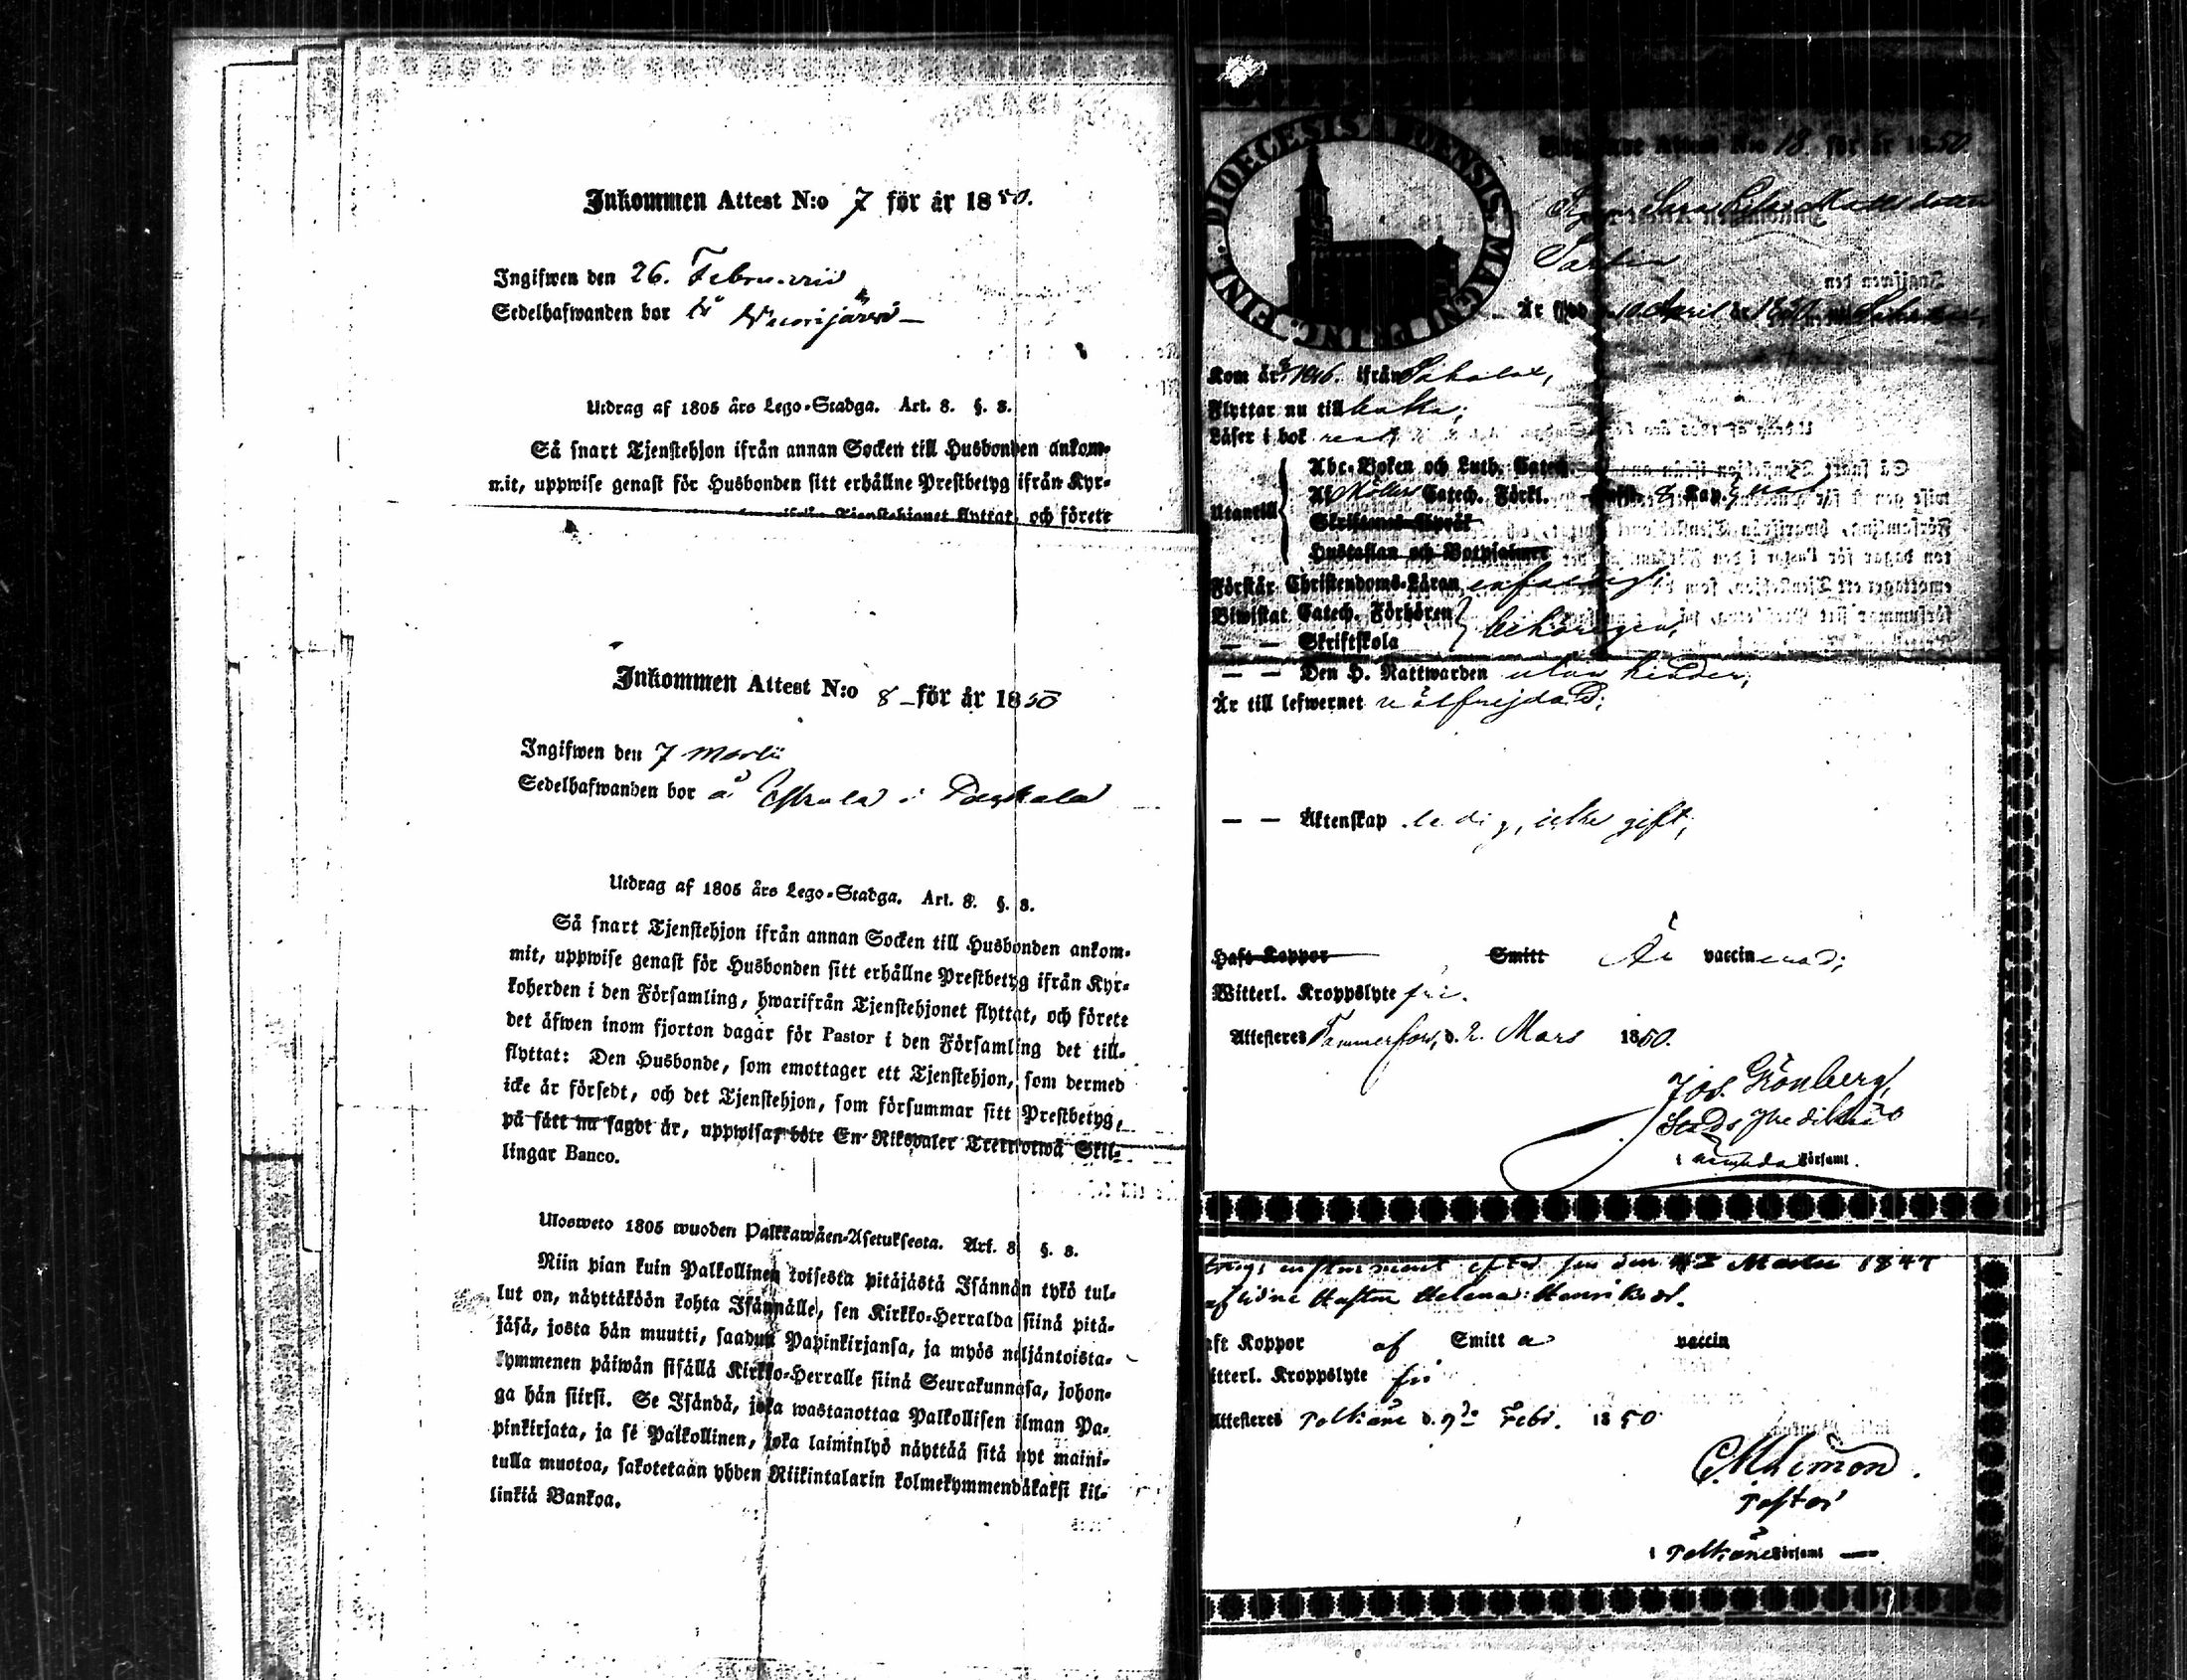 Inkommen Attest N:o 7 för år 1850.
Ingifwen den 26. Februarii
Sedelhafwanden bor å Wuorijärvi
Utdrag af 1805 års Lego-Stadga. Art. 8. §. 8.
Så snart Tjenstehjon ifrån annan Socken till Husbonden ankom-
mit, uppwise genast för Husbonden sitt erhållne Prestbetyg ifrån Kyr-
Tjenstehjonet flyttat, och förete
Inkommen Attest N:o 8 för år 1850
Ingifwen den 7 Martii
Sedelhafwanden bor å i
Utdrag af 1805 års Lego-Stadga. Art. 8. §. 8.
Så snart Tjenstehjon ifrån annan Socken till Husbonden ankom-
mit, uppwise genast för Husbonden sitt erhållne Prestbetyg ifrån Kyr-
koherden i den Församling, hwarifrån Tjenstehjonet flyttat, och förete
det äfwen inom fjorton dagar för Pastor i den Församling det till-
flyttat: Den Husbonde, som emottager ett Tjenstehjon, som dermed
icke är försedt, och det Tjenstehjon, som försummar sitt Prestbetyg,
på sätt nu sagdt är, uppwisa, böte En Riksdaler Trettiotwå Skil-
lingar Banco.
Ulosweto 1805 wuoden Palkkawäen-Asetuksesta. Art. 8 §. 8.
Niin pian kuin Palkollinen toisesta pitäjästä Isännän tykö tul-
lut on, näyttäköön kohta Isännälle, sen Kirkko-Herralda siinä pitä-
jäsä, josta hän muutti, saadun Papinkirjansa, ja myös neljäntoista-
kymmenen päiwän sisällä Kirkko-Herralle siinä Seurakunnasa, johon-
ga hän siirsi. Se Isändä, joka wastanottaa Palkollisen ilman Pa-
pinkirjata, ja se Palkollinen, joka laiminlyö näyttää sitä nyt maini-
tulla muotoa, sakotetaan yhden Riikintalarin kolmekymmendäkaksi kil-
linkiä Bankoa.
FINL. DIOECESIS ABOENSIS MAGNI PRINC.
Attest N:o 18 för år 1850
Är född 10 April
Kom år 1846. ifrån Sahalax,
Flyttar nu till baka;
Läser i bok rent
Utantill
Abc-Boken och Luth. Catech.
Af Möllers Catech. Förkl. 8 Kap.
Skriftenes Språk
Hustaflan och Botpsalmer
Förstår Christendoms-Läran enfaldigt;
Biwistat Catech. Förhören
— — Skriftskola
behörigen,
— — Den H. Nattwarden utan hinder,
Är till lefwernet välfrejdad;
— — Äktenskap ledig, icke gift;
Haft Koppor Smitt Är vaccinerad;
Witterl. Kroppslyte fri.
Attesteras Tammerfors, d. 2. Mars 1850.
Jos. Grönberg
i Församl.
1847
Helena Henriksd.
aft Koppor af Smitta vaccin
itterl. Kroppslyte fri
Attesteras Pelkäne d. 9de Febr. 1850
Pastor
i Pelkäne Församl